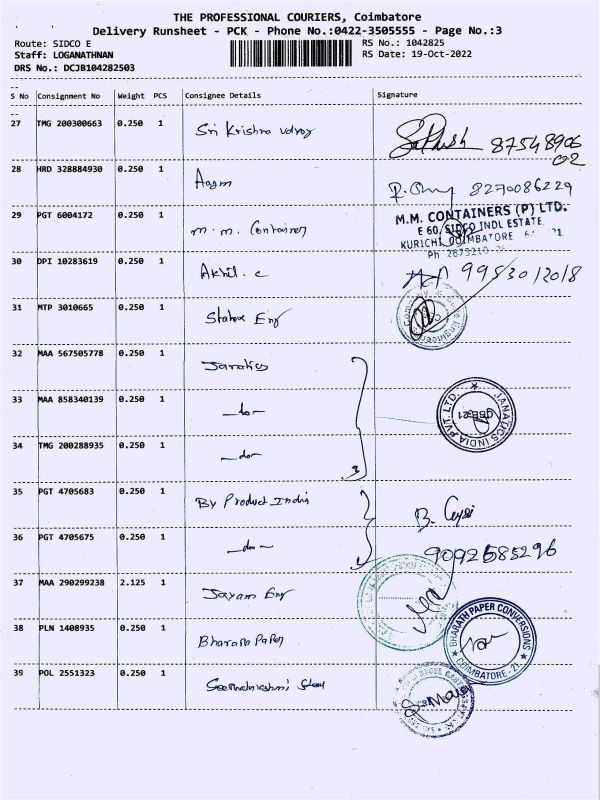 THE PROFESSIONAL COURIERS, Coimbatore
Delivery Runsheet - PCK - Phone No.:0422-3505555 - Page No.:3
Route: SIDCO E RS No.: 1042825
Staff: LOGANATHNAN RS Date: 19-Oct-2022
DRS No.: DCJB104282503
S No Consignment No Weight PCS Consignee Details Signature
27 TMG 200300663 0.250 1 Sri Krishna
87548906
02
28 HRD 328884930 0.250 1
8270086229
29 PGT 6004172 0.250 1 m. m. Container
M.M. CONTAINERS (P) LTD.
E 60, SIDCO INDL ESTATE
KURICHI, COIMBATORE
30 DPI 10283619 0.250 1 Akhil. c
9953012018
31 MTP 3010665 0.250 1 Eng
32 MAA 567505778 0.250 1
33 MAA 858340139 0.250 1 -do-
JANATICS INDIA PVT. LTD.
34 TMG 200288935 0.250 1 -do-
3
35 PGT 4705683 0.250 1 By Product India
B.
36 PGT 4705675 0.250 1 -do-
9092585296
37 MAA 290299238 2.125 1 Jayam Eng
38 PLN 1408935 0.250 1 Bharath Paper
BHARATH PAPER CONVERSIONS
COIMBATORE - 21
39 POL 2551323 0.250 1